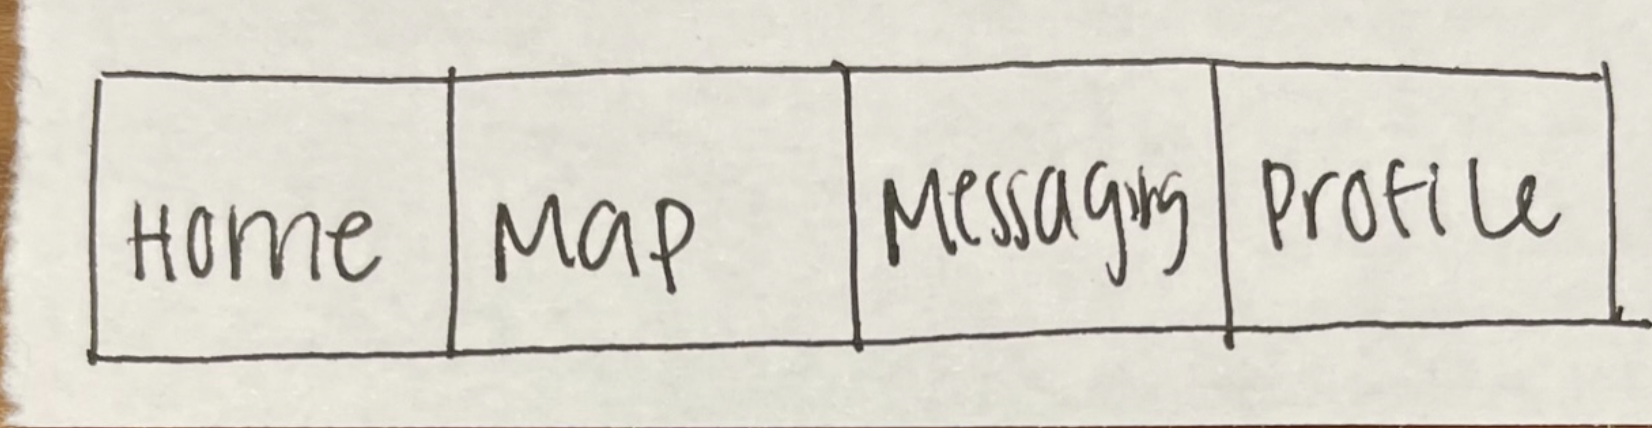 Home Map Messaging Profile